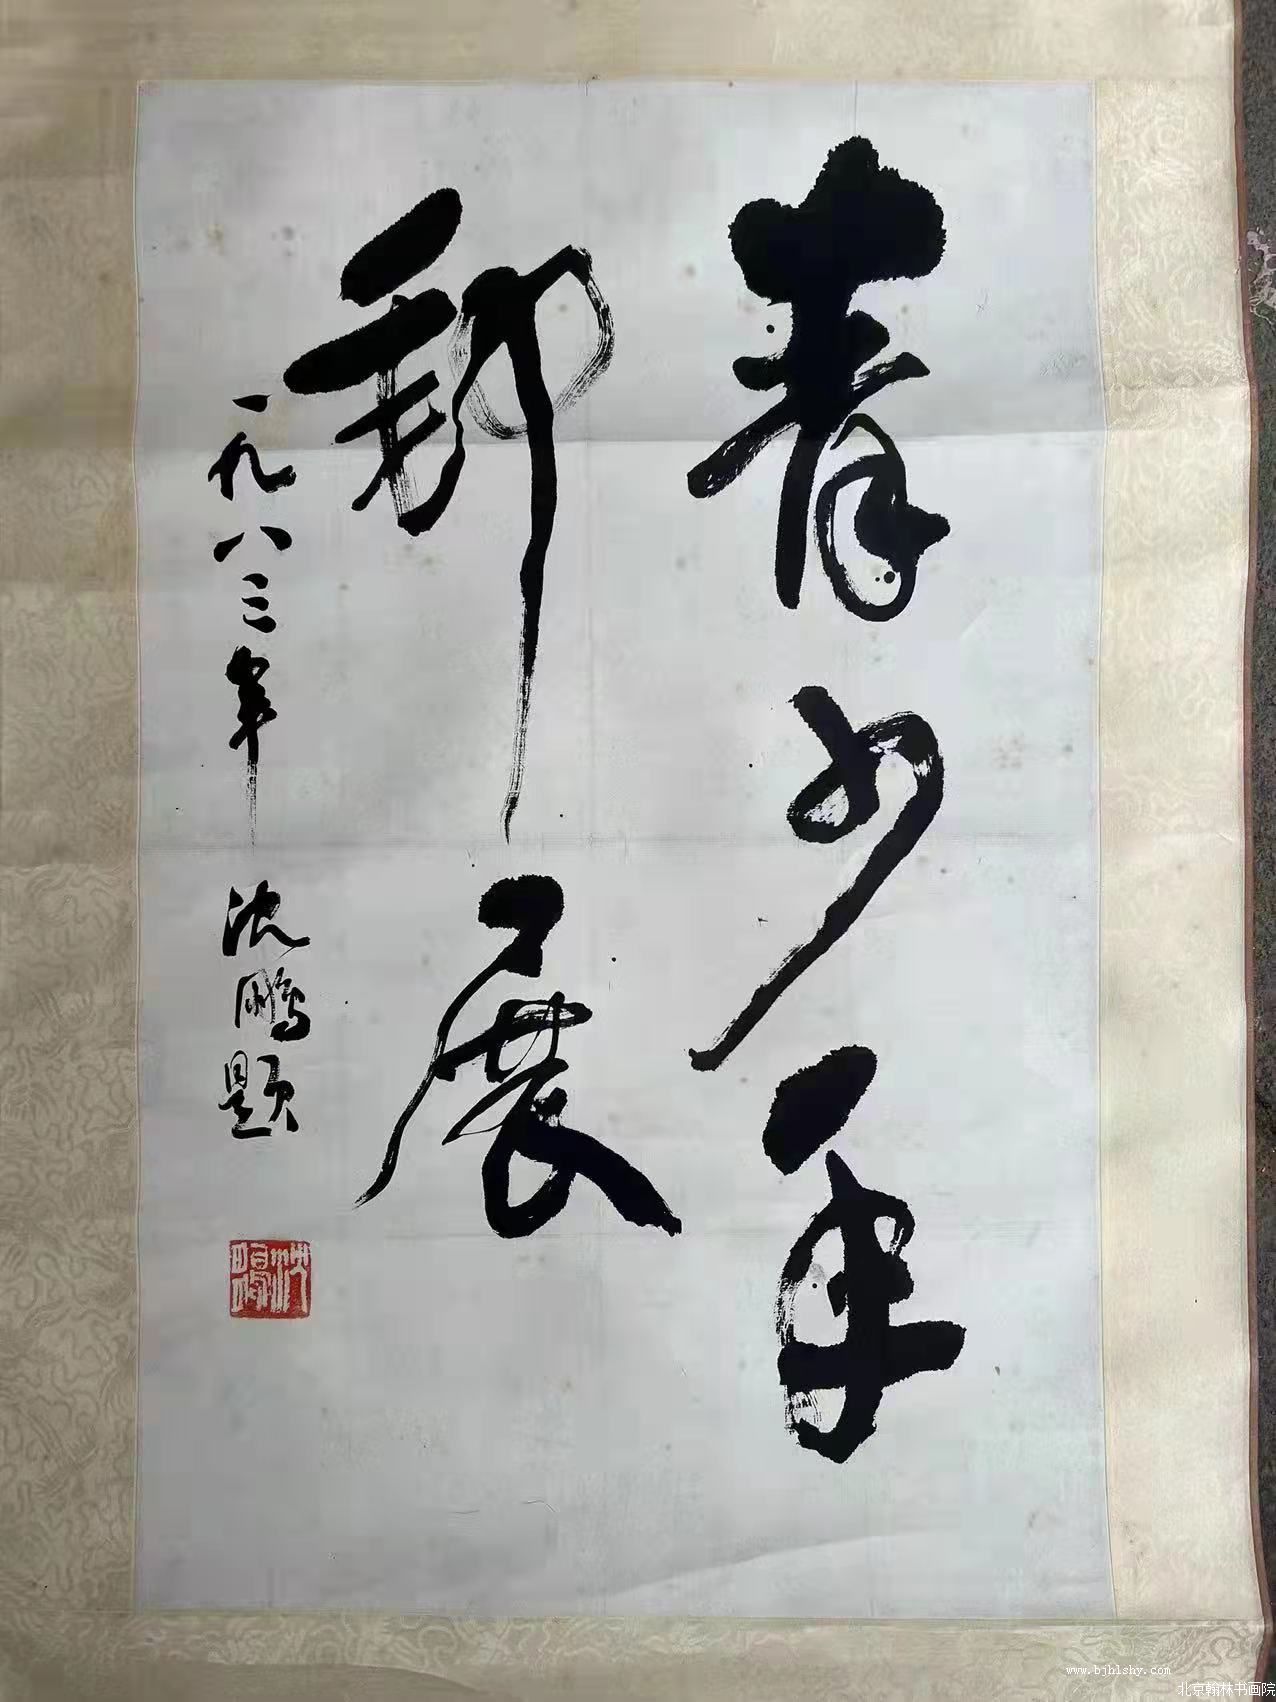 青少年
郵展
一九八三年 沈鵬题
www.bjhlshy.com
北京翰林书画院